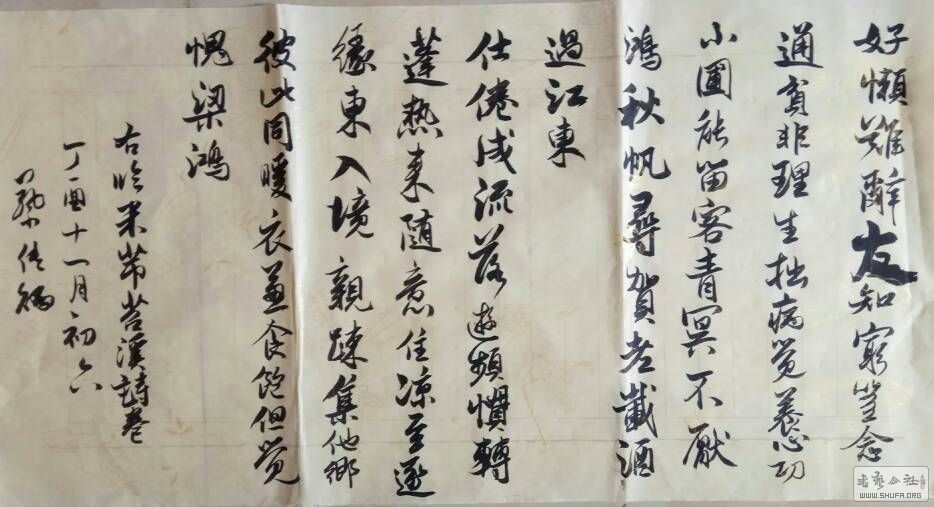 好懶難辭友知窮豈念
通貧非理生拙病覺養心功
小圃能留客青冥不厭
鴻秋帆尋賀老載酒
過江東
仕倦成流落遊頻慣轉
蓬熱來隨意住涼至逐
緣東入境親疎集他鄉
彼此同暖衣兼食飽但覺
愧梁鴻
右臨米芾苕溪詩卷
丁酉十一月初六
書藝公社
WWW.SHUFA.ORG